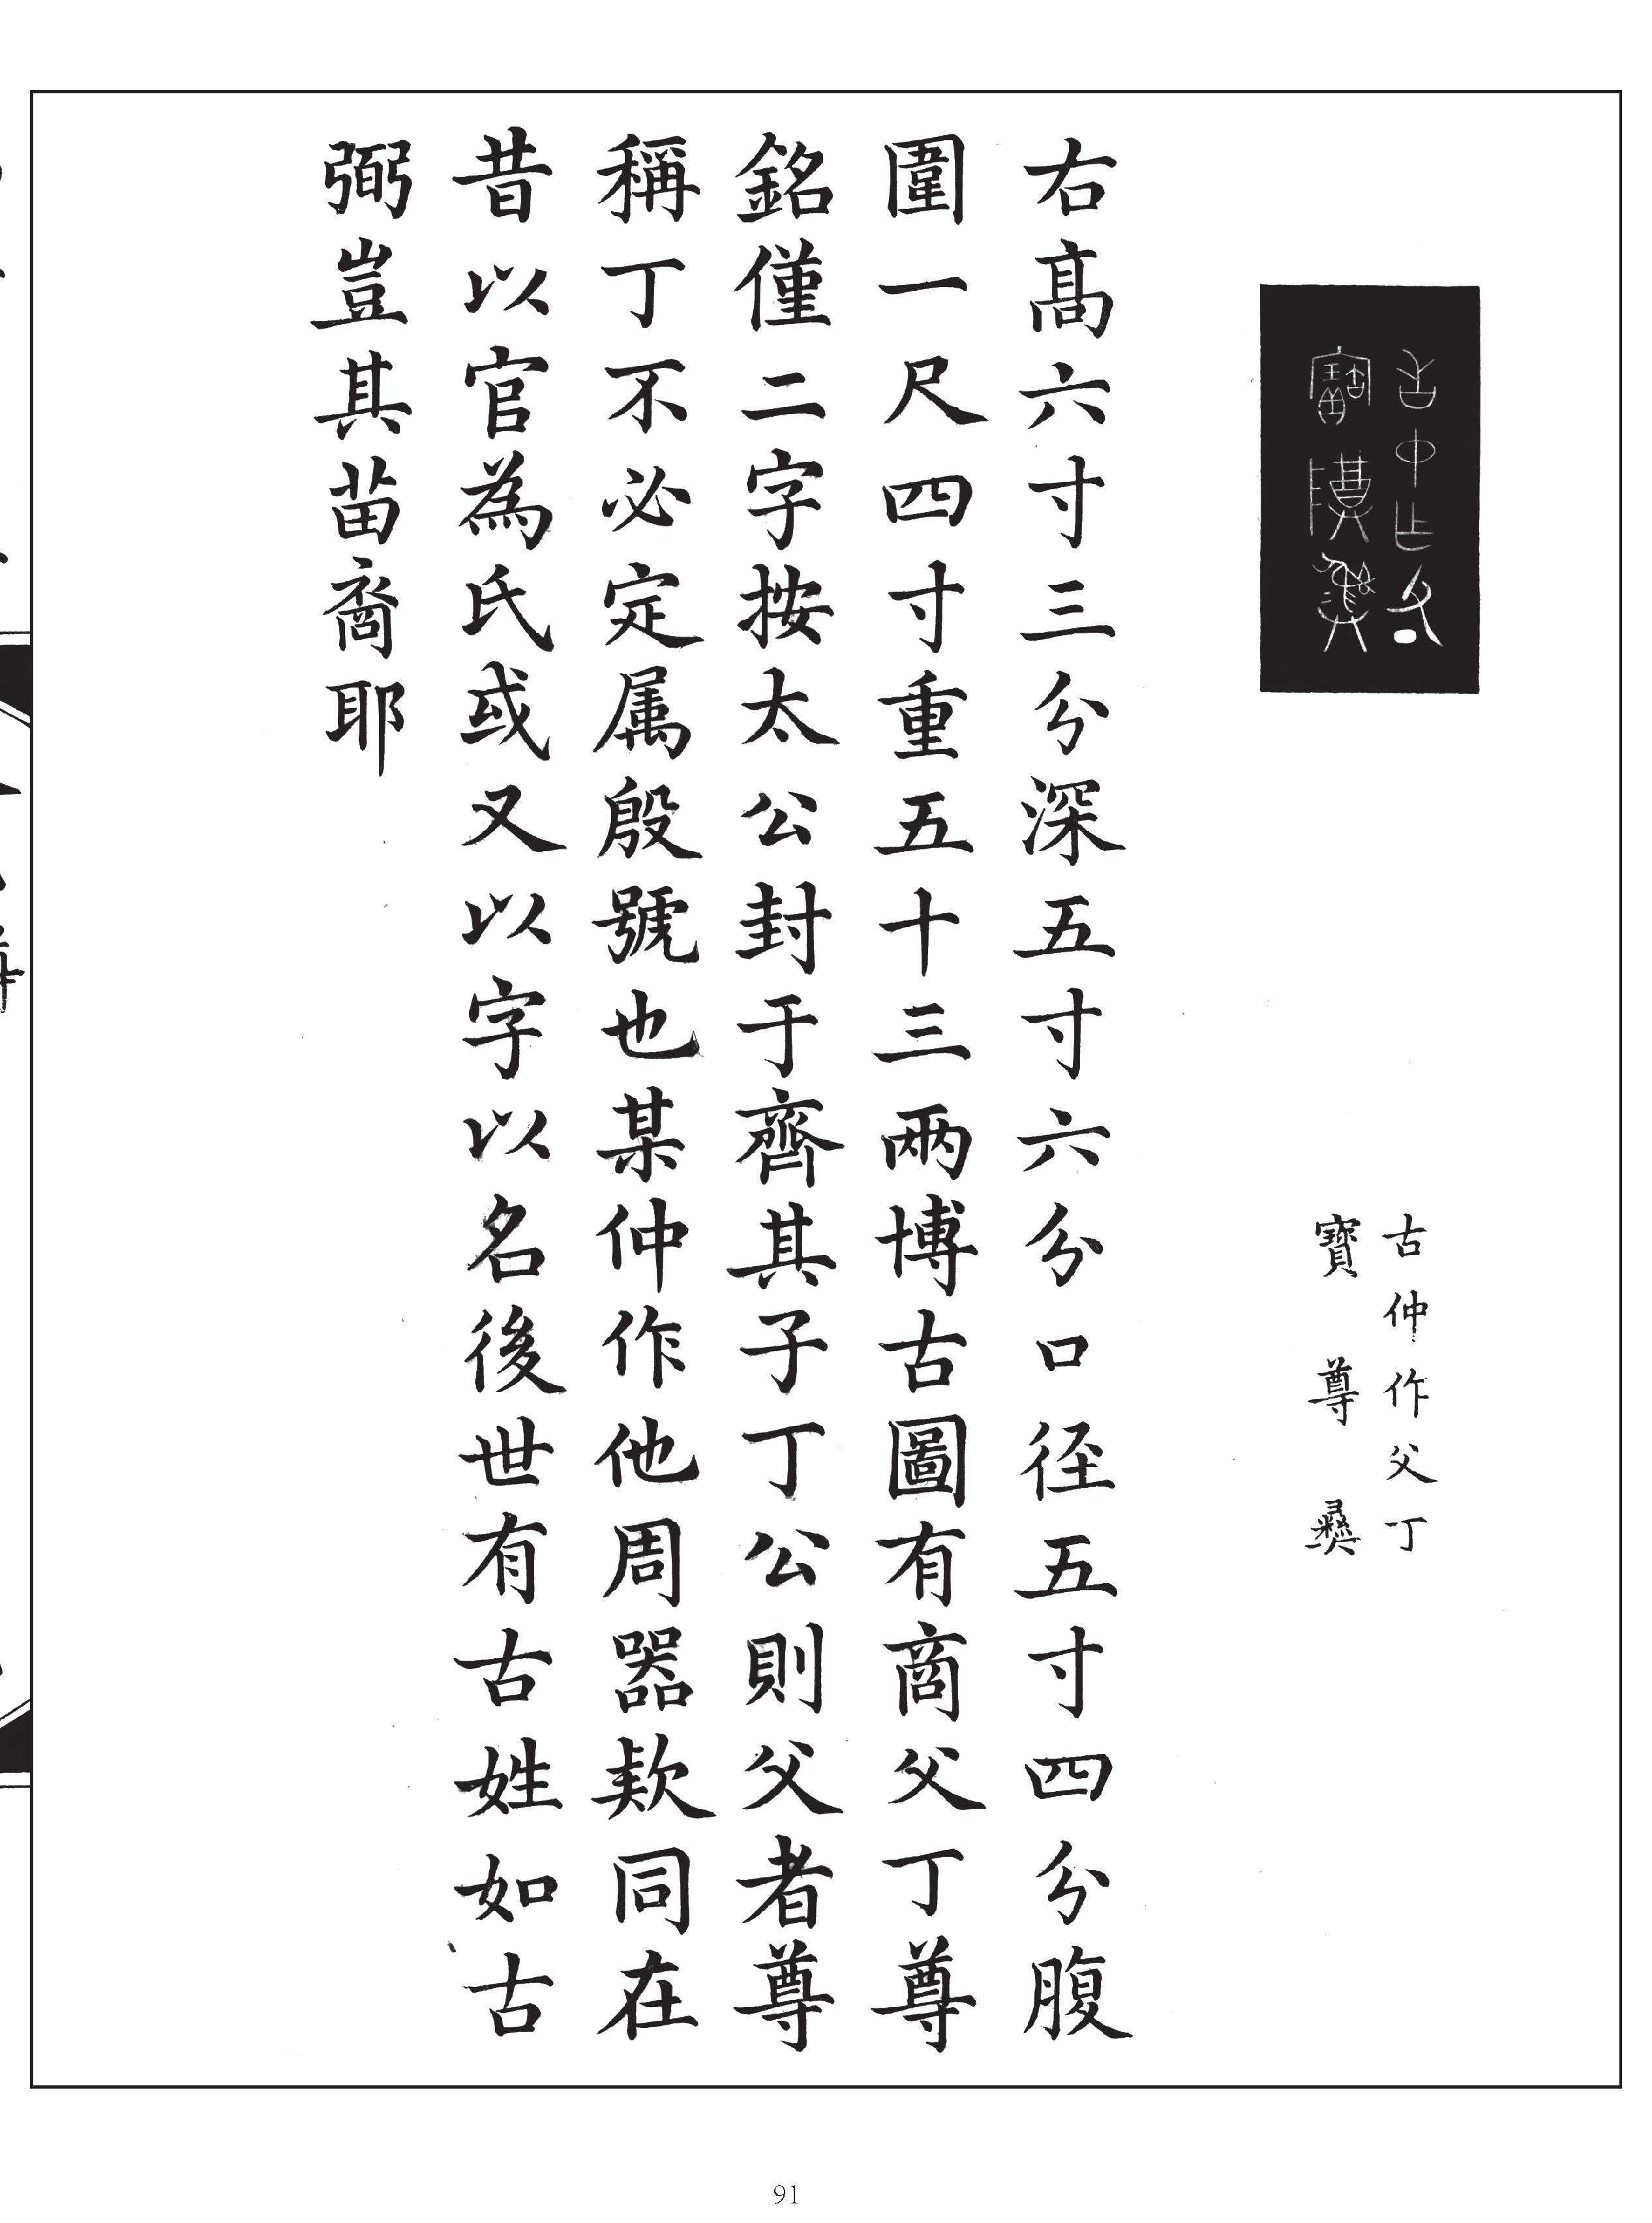 古仲作父丁
寶尊彝
右高六寸三分深五寸六分口径五寸四分腹
圍一尺四寸重五十三兩博古圖有商父丁尊
銘僅二字按太公封于齊其子丁公則父者尊
稱丁不必定属殷號也某仲作他周器欵同在
昔以官為氏或又以字以名後世有古姓如古
弼豈其苗裔耶
91